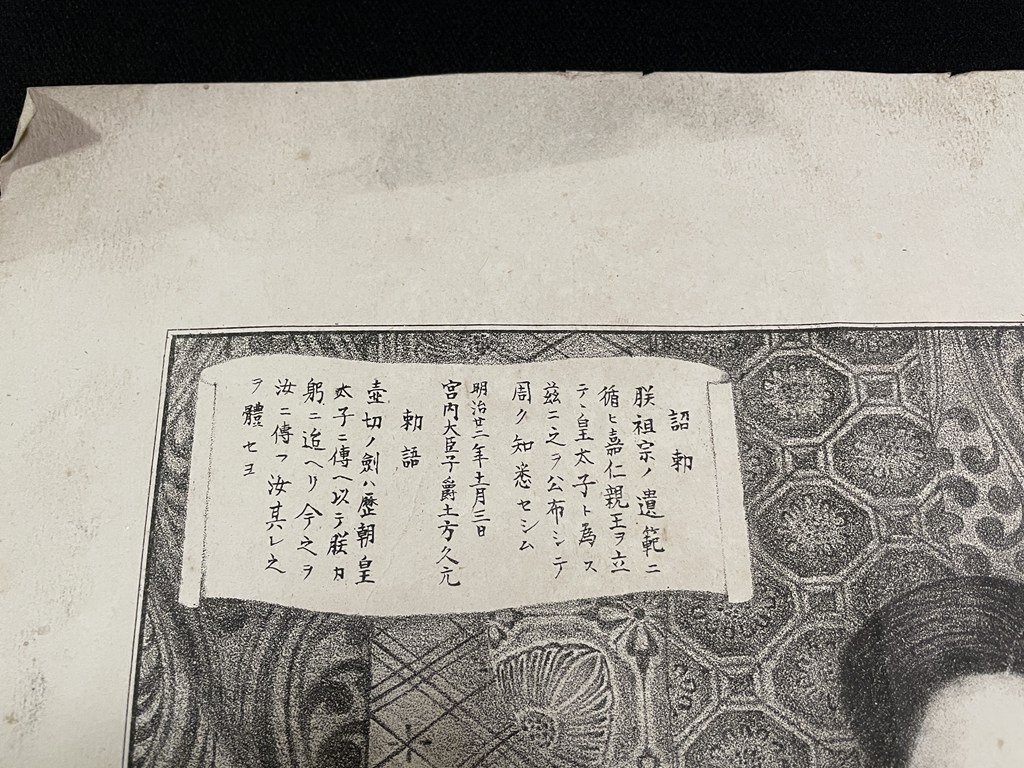 詔勅
朕祖宗ノ遺範ニ
循ヒ嘉仁親王ヲ立
テヽ皇太子ト為ス
茲ニ之ヲ公布シテ
周ク知悉セシム
明治廿二年十一月三日
宮内大臣子爵土方久元
勅語
壺切ノ劍ハ歴朝皇
太子ニ傳ヘ以テ朕カ
躬ニ迨ヘリ今之ヲ
汝ニ傳フ汝其レ之
ヲ體セヨ